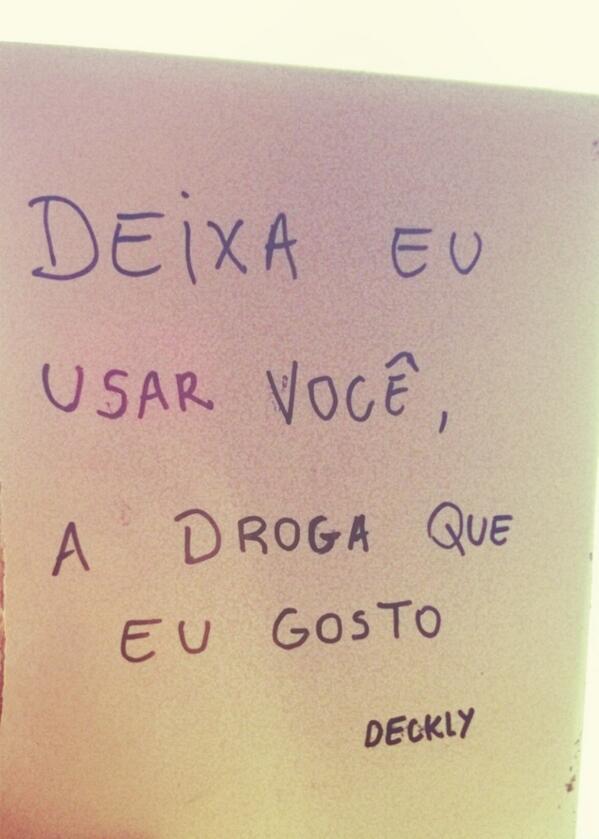 DEIXA EU
USAR VOCÊ,
A DROGA QUE
EU GOSTO
DECKLY